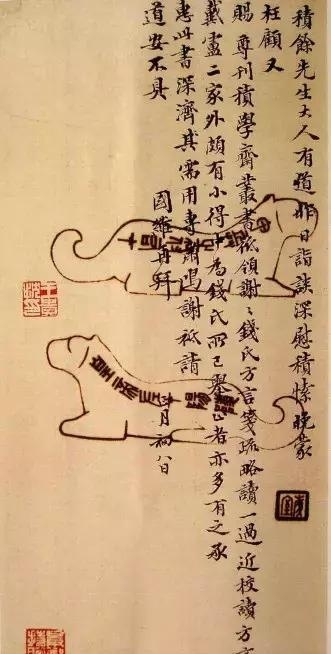 積餘先生大人有道昨日詣談深慰積愫晚蒙
枉顧又
賜尊刊積學齋叢書祗領謝〻錢氏方言箋疏略讀一過近校讀方言
戴盧二家外頗有小得為錢氏所已舉者亦多有之承
惠此書深濟其需用專肅鳴謝祗請
道安不具
國維再拜
月初八日